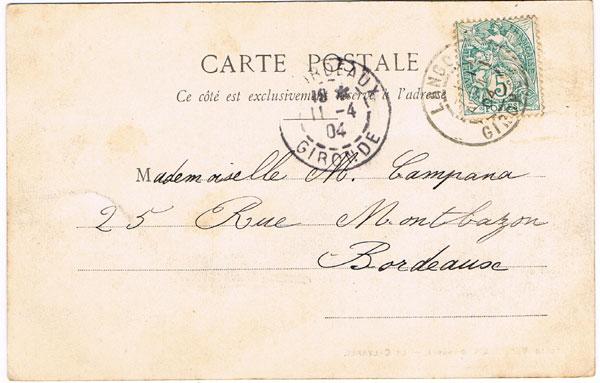 CARTE POSTALE
Ce côté est exclusivement réservé à l'adresse
BORDEAUX
11 -4
04
GIRONDE
5
Mademoiselle M. Campana
25 Rue Montbazon
Bordeaux